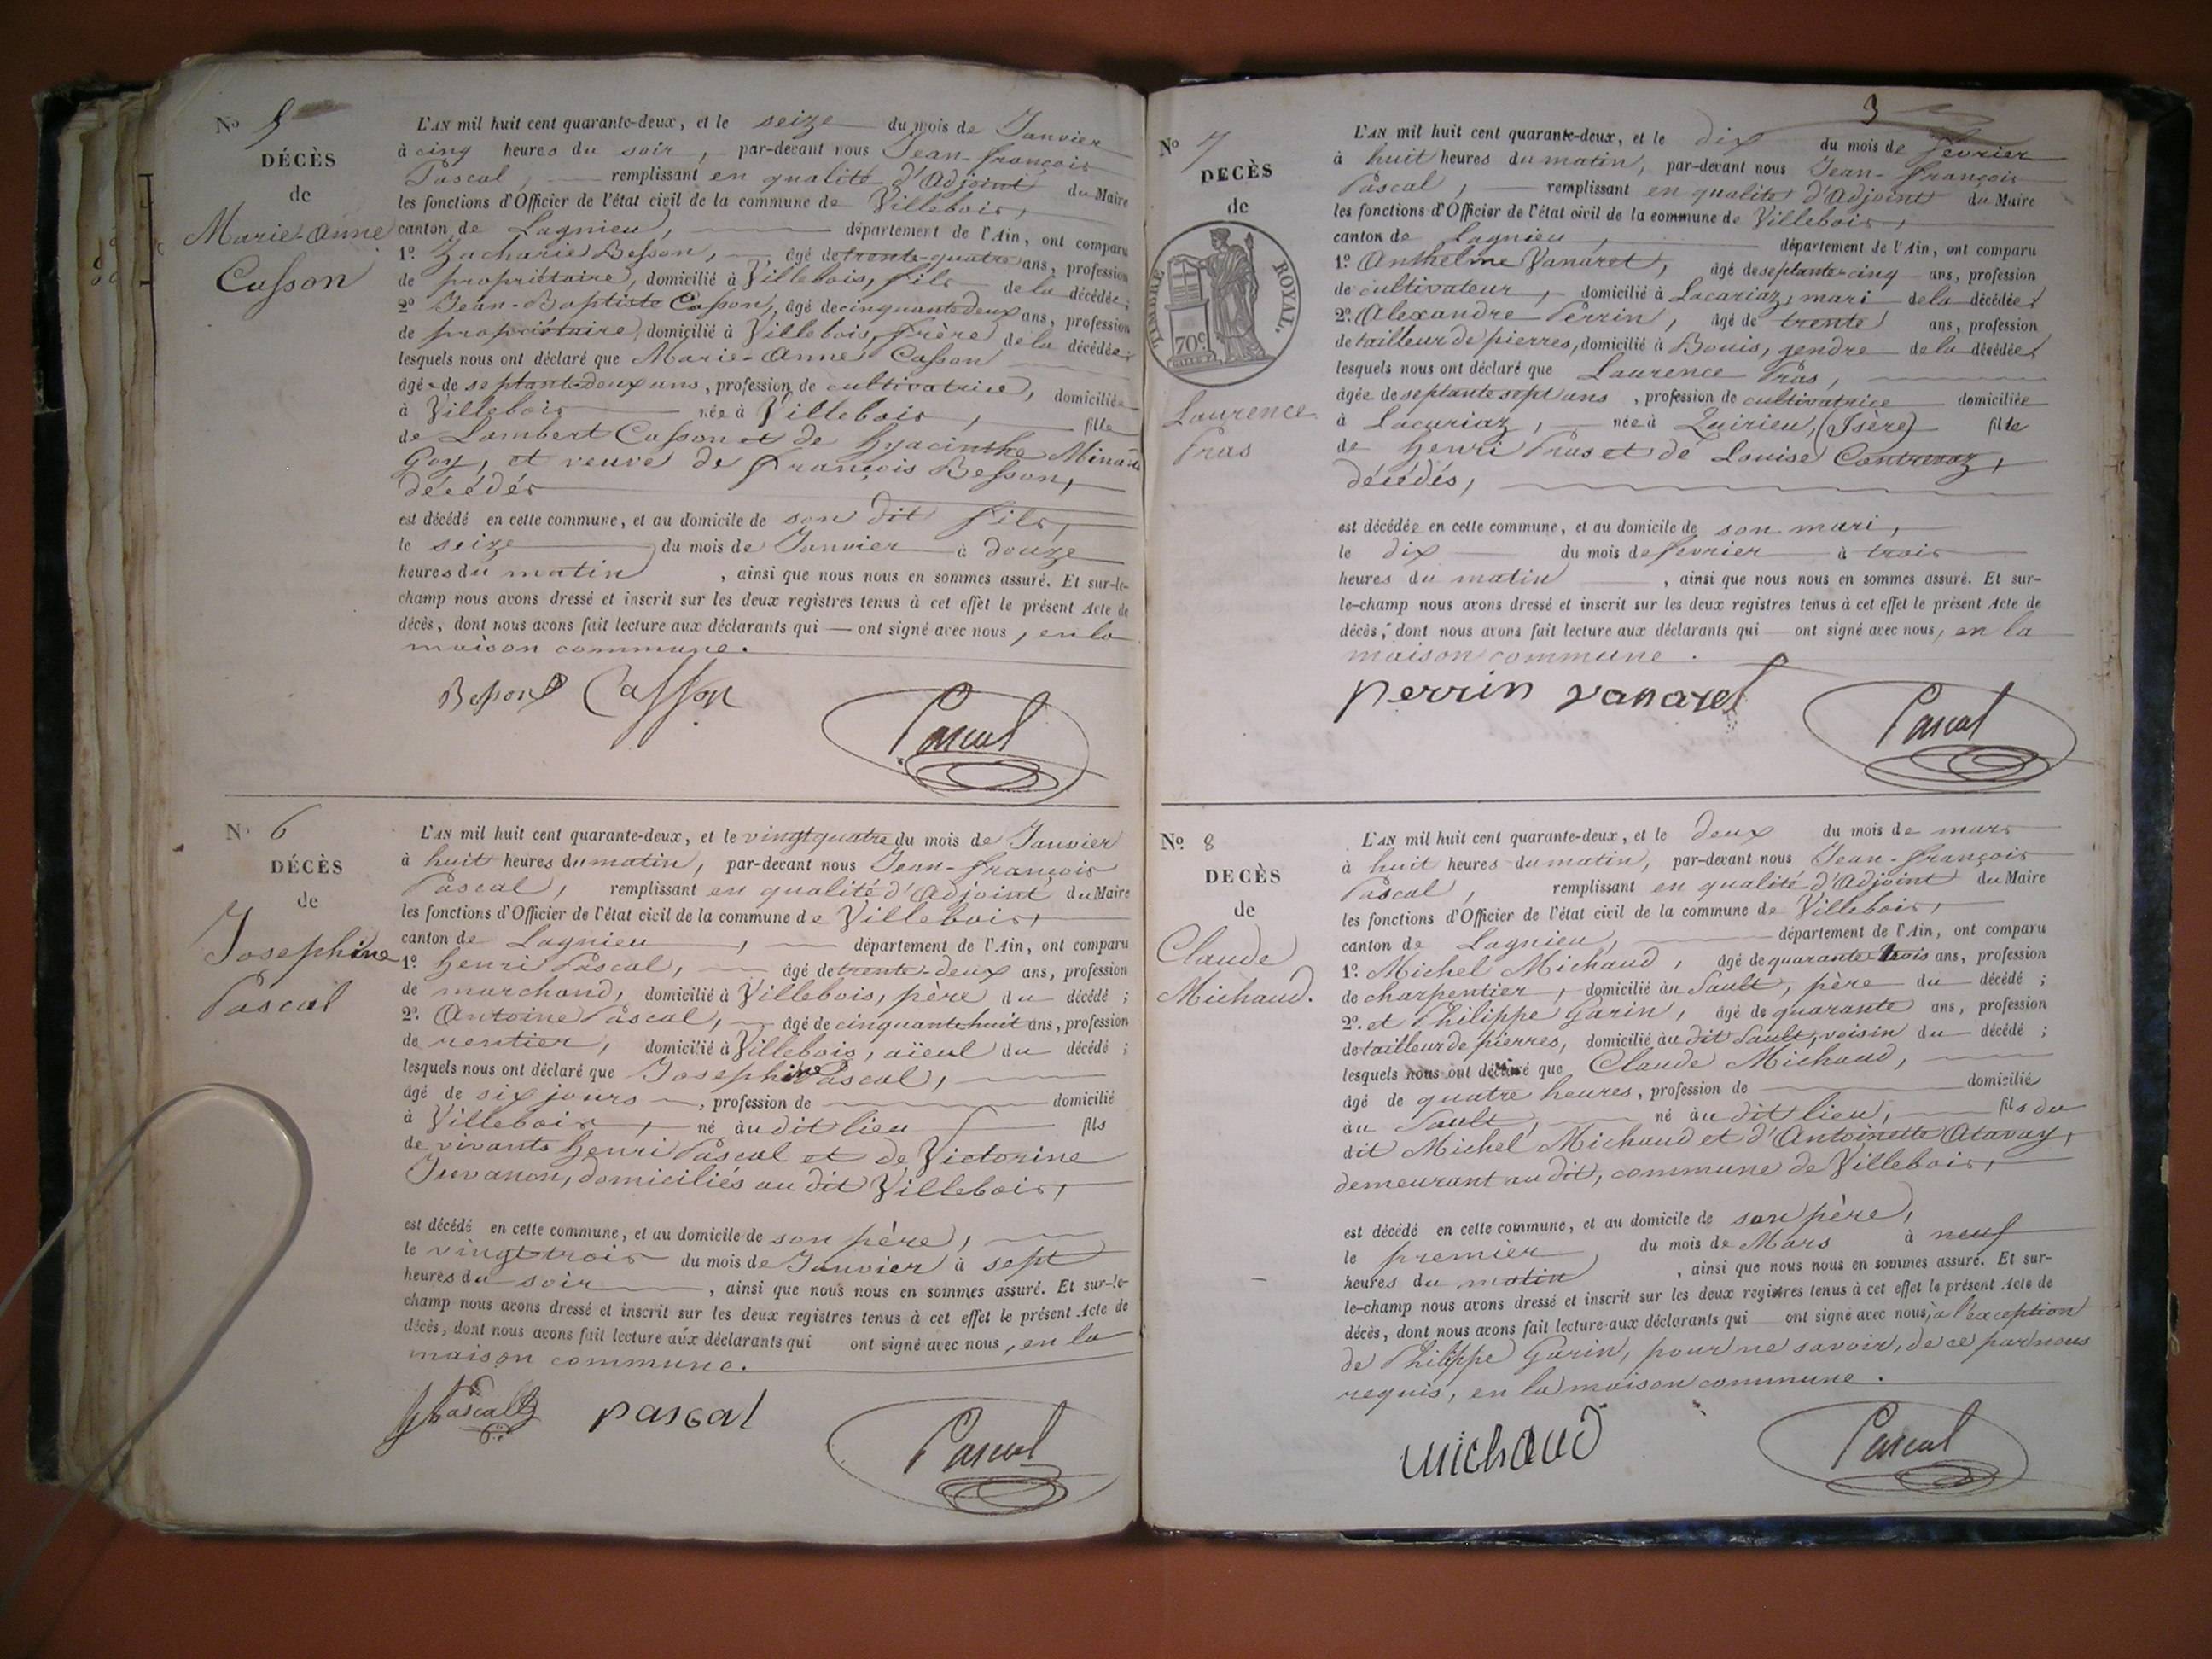 No 5
DÉCÈS
de
Marie-Anne
Casson
L'AN mil huit cent quarante-deux, et le seize du mois de Janvier
à cinq heures du soir, par-devant nous Jean-françois
Pascal, remplissant en qualité d'Adjoint du Maire
les fonctions d'Officier de l'état civil de la commune de Villebois,
canton de Lagnieu, département de l'Ain, ont comparu
1o. Zacharie Besson, âgé de trente-quatre ans, profession
de propriétaire, domicilié à Villebois, fils de la décédée;
2o Jean-Baptiste Casson, âgé de cinquante deux ans, profession
de propriétaire, domicilié à Villebois, frère de la décédée;
lesquels nous ont déclaré que Marie-Anne Casson
âgée de septante-deux ans, profession de cultivatrice, domiciliée
à Villebois née à Villebois, fille
de Lambert Casson et de hyacinthe
Goy, et veuve de françois Besson,
décédés
est décédé en cette commune, et au domicile de son dit fils,
le seize du mois de Janvier à douze
heures du matin, ainsi que nous nous en sommes assuré. Et sur-le-
champ nous avons dressé et inscrit sur les deux registres tenus à cet effet le présent Acte de
décès, dont nous avons fait lecture aux déclarants qui — ont signé avec nous, en la
maison commune.
Besson Casson
Pascal
No 6
DÉCÈS
de
Josephine
Pascal
L'AN mil huit cent quarante-deux, et le vingt quatre du mois de Janvier
à huit heures du matin, par-devant nous Jean-françois
Pascal, remplissant en qualité d'Adjoint du Maire
les fonctions d'Officier de l'état civil de la commune de Villebois,
canton de Lagnieu, département de l'Ain, ont comparu
1o. henri Pascal, âgé de trente-deux ans, profession
de marchand, domicilié à Villebois, père du décédé;
2o. Antoine Pascal, âgé de cinquante huit ans, profession
de rentier, domicilié à Villebois, aïeul du décédé;
lesquels nous ont déclaré que Josephine Pascal,
âgé de six jours, profession de domicilié
à Villebois, né au dit lieu fils
de vivants henri Pascal et de Victorine
Juvanon, domiciliés au dit Villebois,
est décédé en cette commune, et au domicile de son père,
le vingt trois du mois de Janvier à sept
heures du soir, ainsi que nous nous en sommes assuré. Et sur-le-
champ nous avons dressé et inscrit sur les deux registres tenus à cet effet le présent Acte de
décès, dont nous avons fait lecture aux déclarants qui ont signé avec nous, en la
maison commune.
Pascal
pascal
Pascal
3
No 7
DÉCÈS
de
TIMBRE ROYAL.
70c
Laurence
Pras
L'AN mil huit cent quarante-deux, et le dix du mois de fevrier
à huit heures du matin, par-devant nous Jean-françois
Pascal, remplissant en qualité d'Adjoint du Maire
les fonctions d'Officier de l'état civil de la commune de Villebois,
canton de Lagnieu, département de l'Ain, ont comparu
1o. Anthelme Vanaret, âgé de septante cinq ans, profession
de cultivateur, domicilié à Lacariaz, mari de la décédée;
2o. Alexandre Perrin, âgé de trente ans, profession
de tailleur de pierres, domicilié à Bouis, gendre de la décédée;
lesquels nous ont déclaré que Laurence Pras,
âgée de septante sept ans, profession de cultivatrice domiciliée
à Lacariaz, née à Quirieu, (Isère) fille
de henri Pras et de Louise Contrevoz,
décédés,
est décédée en cette commune, et au domicile de son mari,
le dix du mois de fevrier à trois
heures du matin, ainsi que nous nous en sommes assuré. Et sur-
le-champ nous avons dressé et inscrit sur les deux registres tenus à cet effet le présent Acte de
décès, dont nous avons fait lecture aux déclarants qui — ont signé avec nous, en la
maison commune.
perrin vanaret
Pascal
No 8
DÉCÈS
de
Claude
Michaud.
L'AN mil huit cent quarante-deux, et le deux du mois de mars
à huit heures du matin, par-devant nous Jean-françois
Pascal, remplissant en qualité d'Adjoint du Maire
les fonctions d'Officier de l'état civil de la commune de Villebois,
canton de Lagnieu, département de l'Ain, ont comparu
1o. Michel Michaud, âgé de quarante-trois ans, profession
de charpentier, domicilié au Sault, père du décédé;
2o. et Philippe Garin, âgé de quarante ans, profession
de tailleur de pierres, domicilié au dit Sault, voisin du décédé;
lesquels nous ont déclaré que Claude Michaud,
âgé de quatre heures, profession de domicilié
au Sault, né au dit lieu, fils du
dit Michel Michaud et d'Antoinette Atavay,
demeurant au dit, commune de Villebois,
est décédé en cette commune, et au domicile de son père,
le premier, du mois de Mars à neuf
heures du matin, ainsi que nous nous en sommes assuré. Et sur-
le-champ nous avons dressé et inscrit sur les deux registres tenus à cet effet le présent Acte de
décès, dont nous avons fait lecture aux déclarants qui ont signé avec nous, à l'exception
de Philippe Garin, pour ne savoir, de ce par nous
requis, en la maison commune.
michaud
Pascal